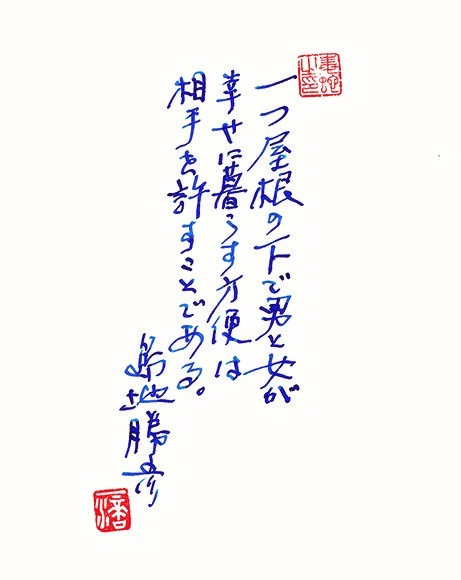 一つ屋根の下で男と女が
幸せに暮らす方便は
相手を許すことである。
島地勝彦